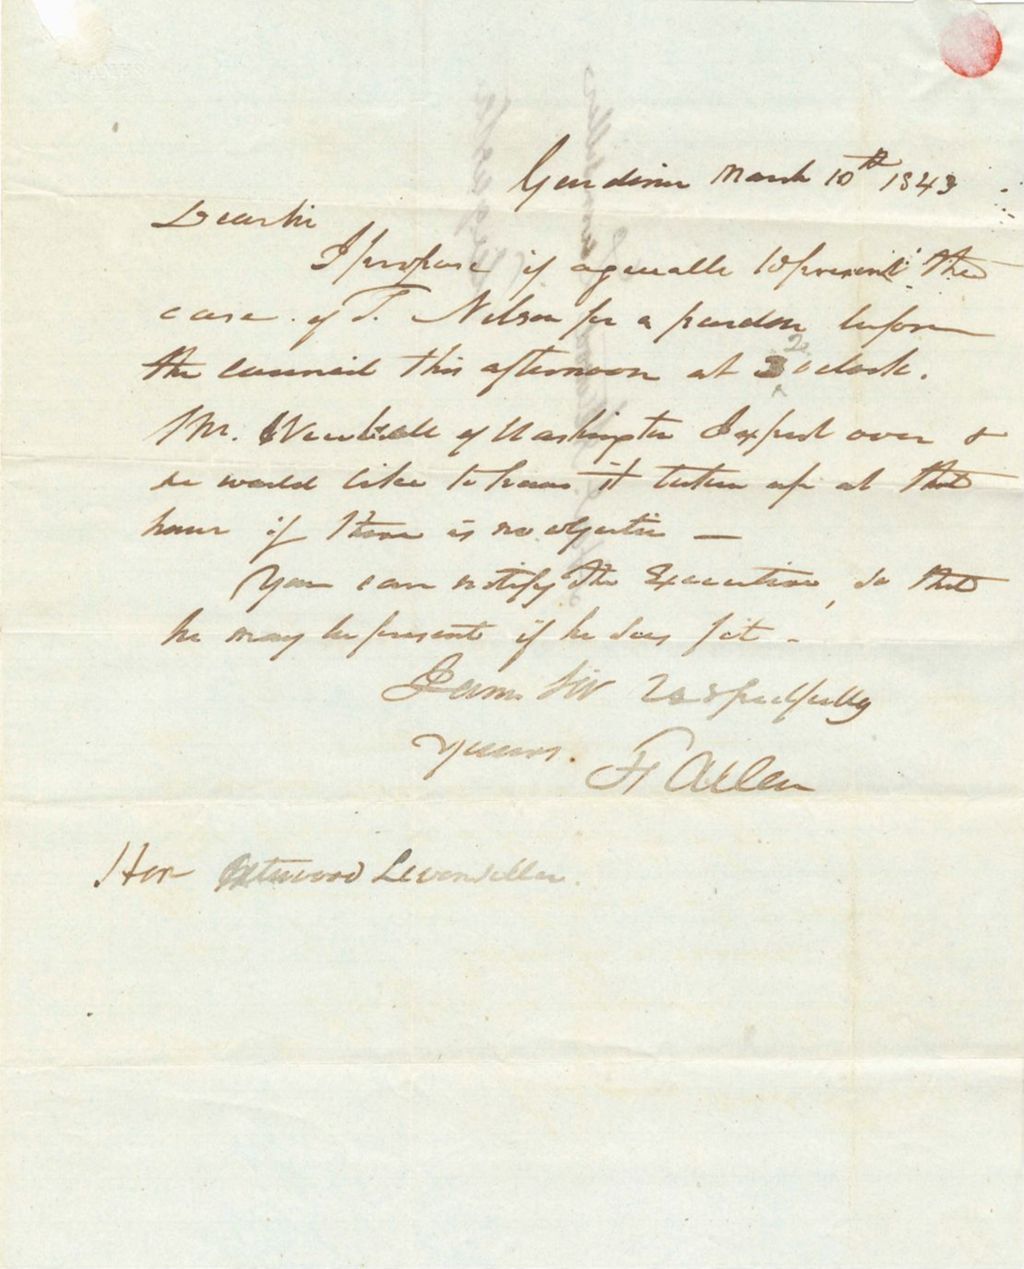 Gardiner March 10th 1843
Dear Sir
I propose if agreeable to present the
case of T. Nelson for a pardon before
the council this afternoon at 2 oclock.
Mr. of Washington I expect over &
he would like to have it taken up at that
hour if there is no objection —
You can notify the Executive, so that
he may be present if he sees fit -
I am Sir respectfully
yours. F Allen
Hon Atwood Levensaller